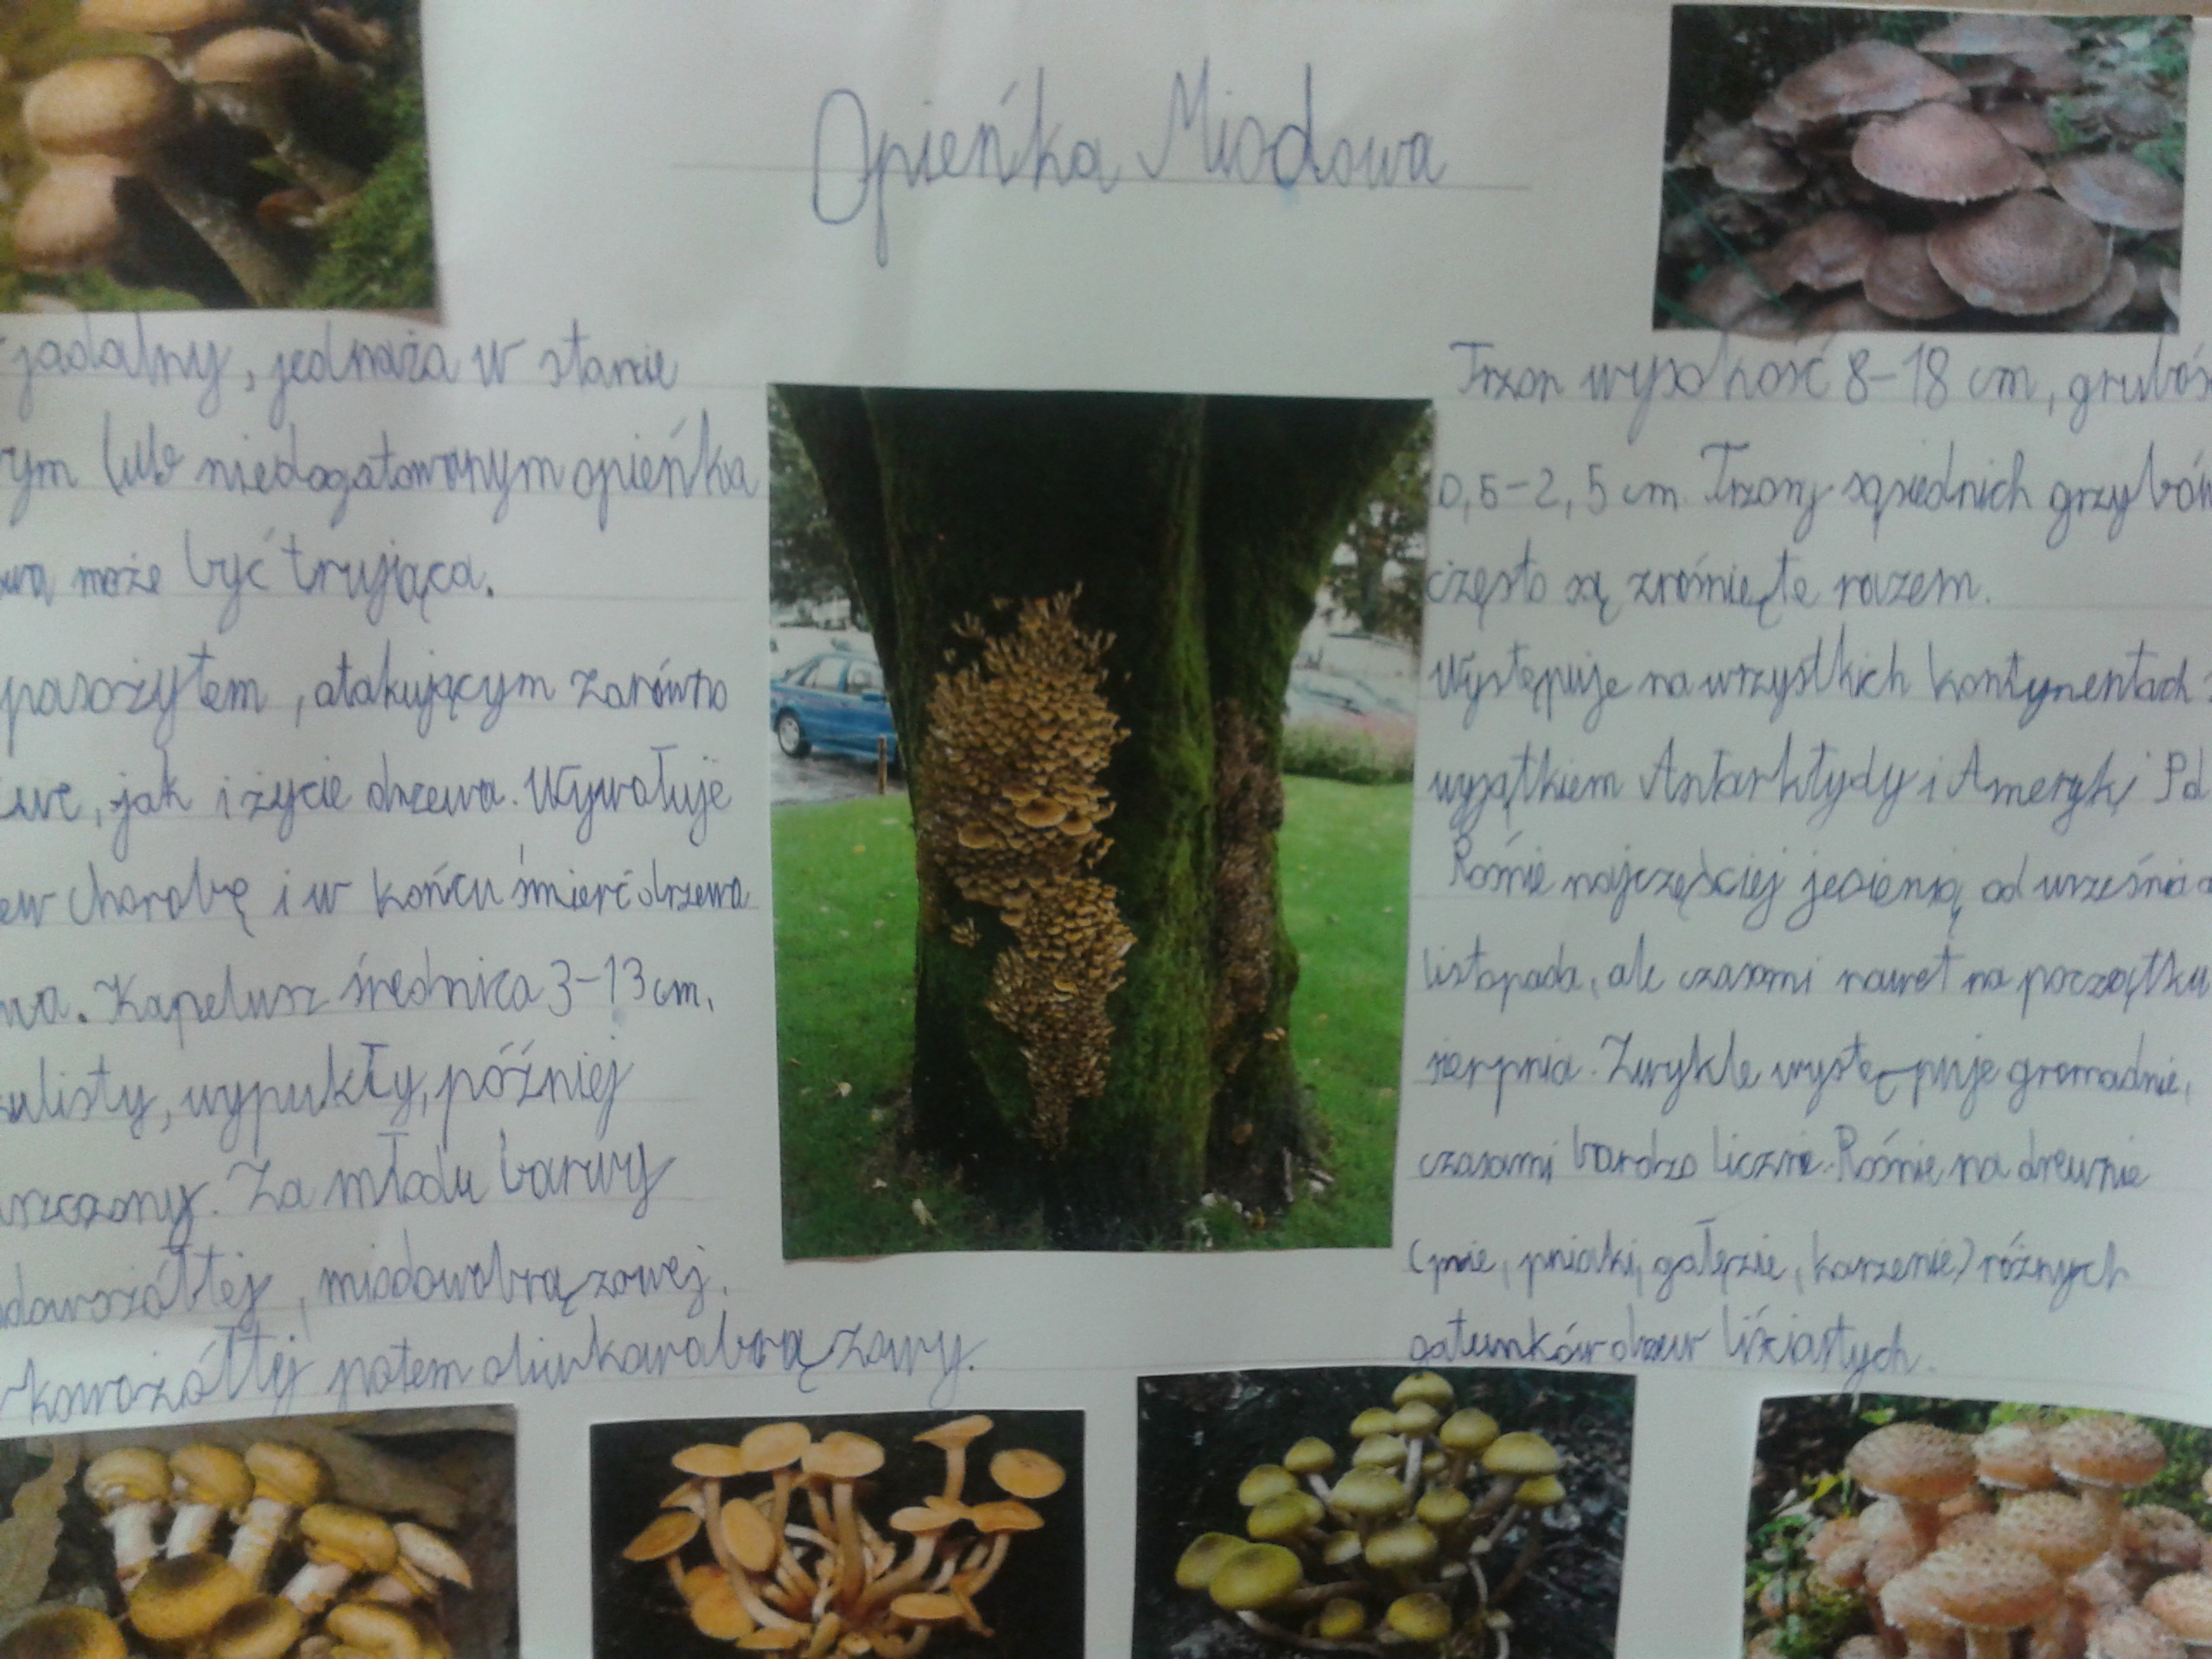 Opieńka Miodowa
jadalny, jednaża w stanie
rym lub niedogotowanym opieńka
wa może być trująca.
pasożytem, atakującym zarówno
we, jak i życie drzewa. Wywołuje
ew chorobę i w końcu śmierć drzewa
wa. Kapelusz średnica 3-13 cm,
ulisty, wypukły, później
szczony. Za młodu barwy
dowożółtej, miodowobrązowej,
kowożółtej potem oliwkowobrązowy.
Trzon wysokość 8-18 cm, gruboś
0,5-2,5 cm. Trzony sąsiednich grzybów
często są zrośnięte razem.
Występuje na wszystkich kontynentach
wyjątkiem Antarktydy i Ameryki Pd
Rośnie najczęściej jesienią, od września
listopada, ale czasami nawet na początku
sierpnia. Zwykle występuje gromadnie,
czasami bardzo licznie. Rośnie na drewnie
(pnie, pniaki, gałęzie, korzenie) różnych
gatunków drzew liściastych.